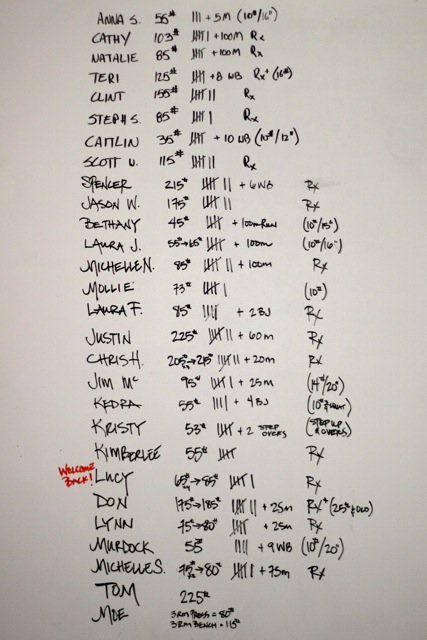 ANNA S. 55# ||| + 5M (10#/16")
CATHY 103# |||| | + 100M Rx
NATALIE 85# |||| + 100M Rx
TERI 125# |||| + 8 WB Rx+ (16#)
CLINT 155# |||| || Rx
STEPH S. 85# |||| | Rx
CAITLIN 35# |||| + 10 WB (10#/12")
SCOTT W. 115# |||| || Rx
SPENCER 215# |||| || + 6 WB Rx
JASON W. 175# |||| || Rx
BETHANY 45# |||| + 100m Run (10#/15")
LAURA J. 55#→65# |||| + 100m (10#/16")
MICHELLE N. 85# |||| || + 100m Rx
MOLLIE 73# |||| | (10#)
LAURA F. 85# |||| + 2 BJ Rx
JUSTIN 225# |||| || + 60m Rx
CHRIS H. 205#→215# |||| || + 20m Rx
JIM MC 95# |||| | + 25m (14#/20")
KEDRA 55# |||| + 4 BJ (10#
KRISTY 53# |||| + 2 STEP OVERS (STEP UP & OVERS)
KIMBERLEE 55# |||| Rx
WELCOME BACK! LUCY 65#→85# |||| | Rx
DON 175#→185# |||| || + 25m Rx+ (25#
LYNN 75#→80# |||| + 25m Rx
MURDOCK 55# |||| + 9 WB (10#/20")
MICHELLE S. 75#→80# |||| | + 75m Rx
TOM 225#
MOE 3RM PRESS = 80#
3RM BENCH = 115#